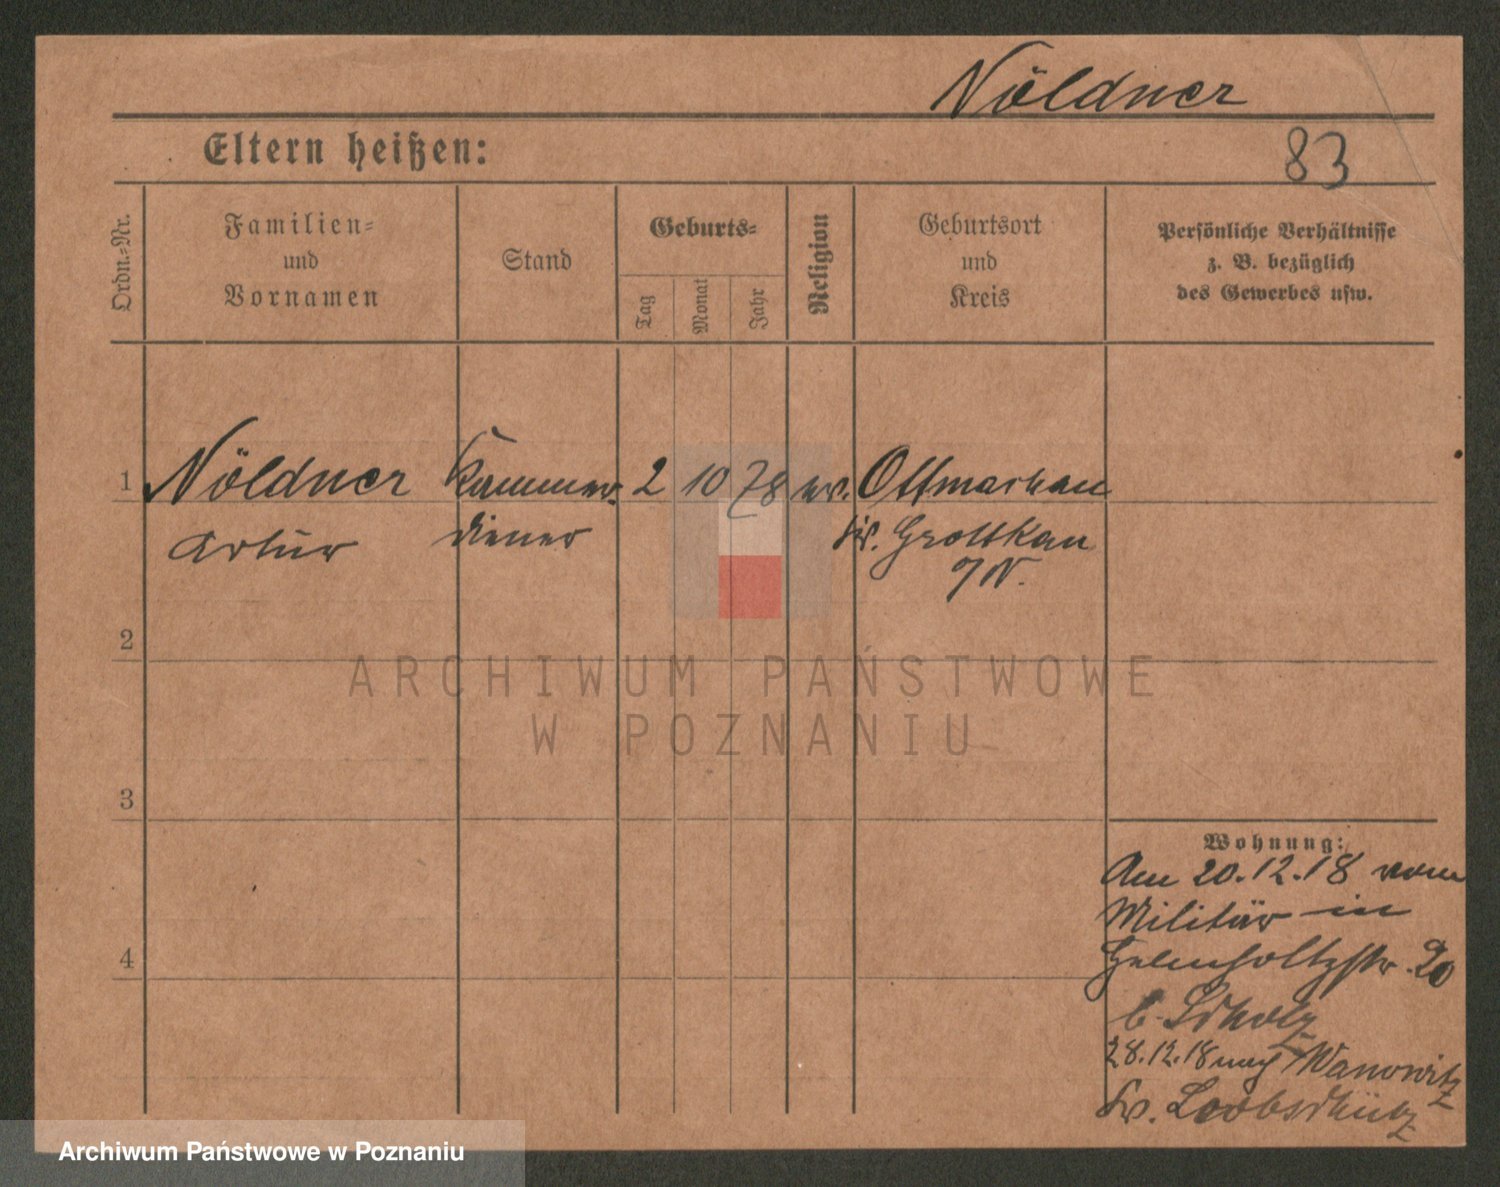 Nöldner
Eltern heißen:
83
Ordn.-Nr.
Familien-
und
Vornamen
Stand
Geburts-
Tag
Monat
Jahr
Religion
Geburtsort
und
Kreis
Persönliche Verhältnisse
z. B. bezüglich
des Gewerbes usw.
1 Nöldner Kammer- 2 10 78 ev. Ottmachau
Artur diener Kr. Grottkau
2
ARCHIWUM PAŃSTWOWE
W POZNANIU
3
Wohnung:
Am 20.12.18 vom
Militär in
4
Helmholtzstr. 20
b. Scholz
28.12.18 nach Wanowitz
Kr. Leobschütz
Archiwum Państwowe w Poznaniu